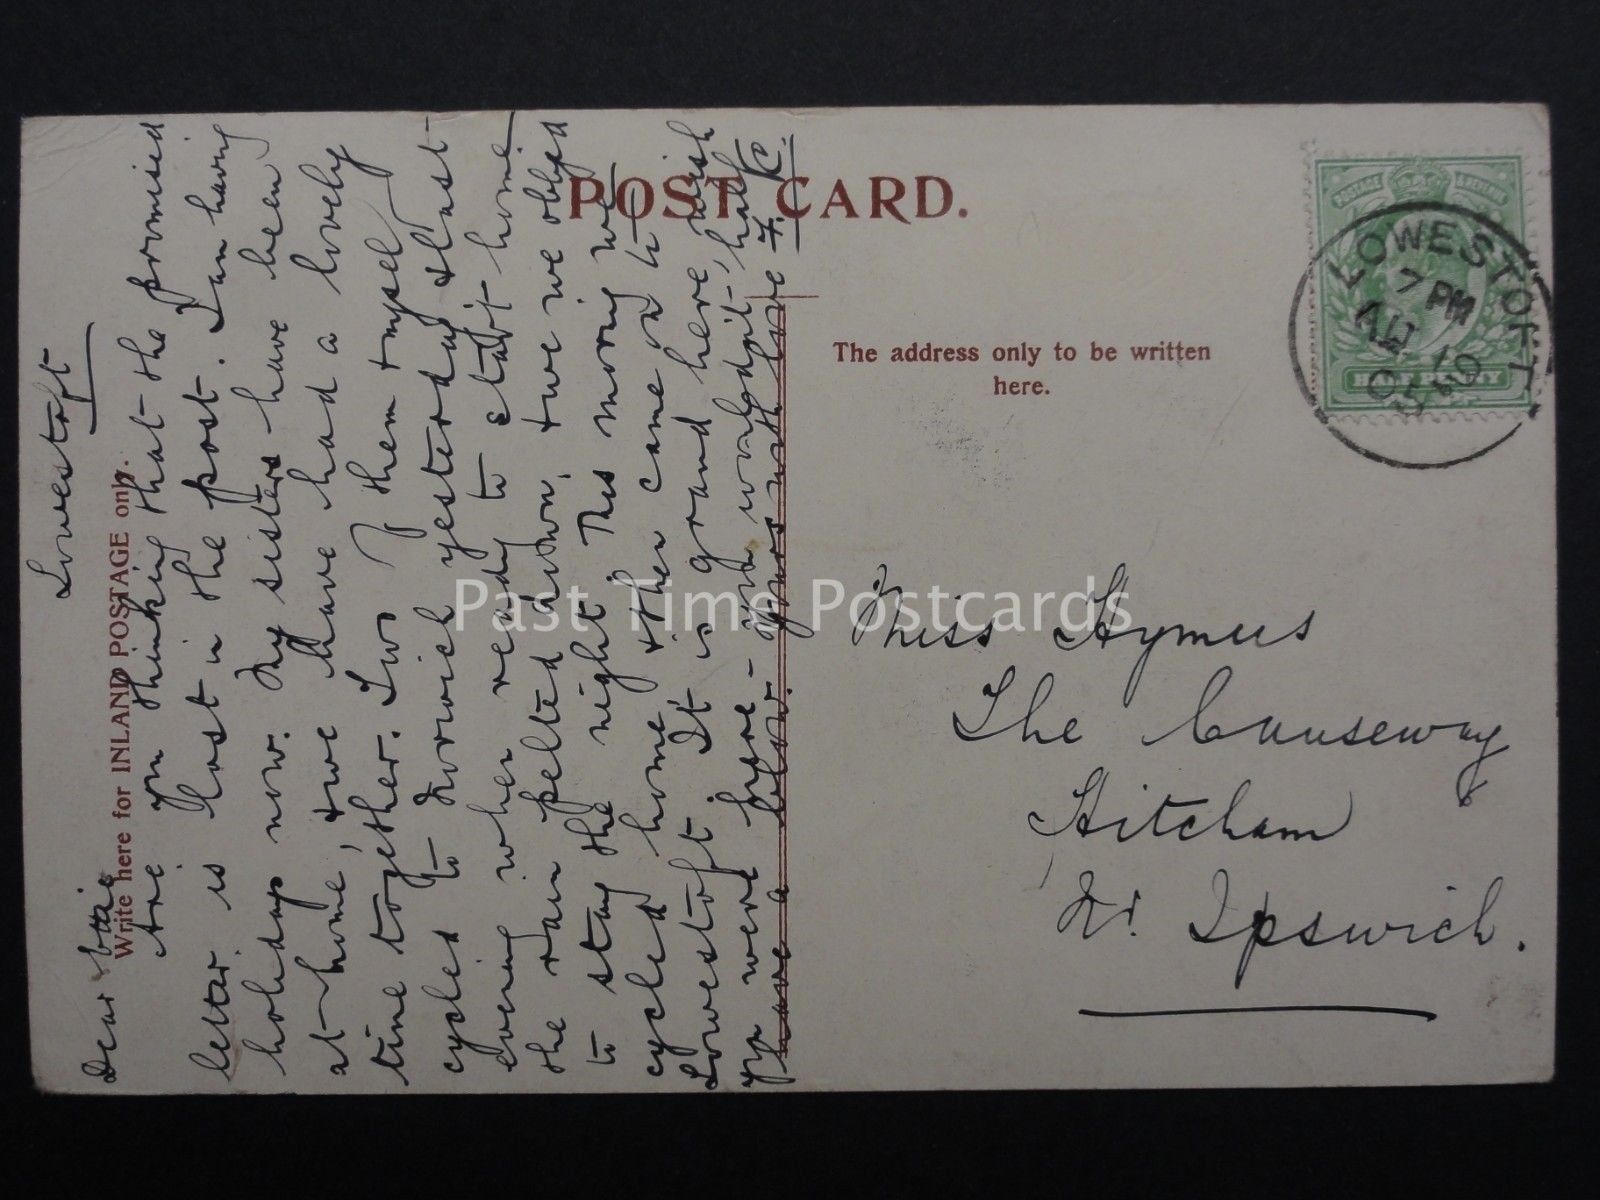 POST CARD.
Write here for INLAND POSTAGE only.
The address only to be written
here.
LOWESTOFT
7 PM
AU 19
05
Lowestoft
Dear
Are you thinking that the promised
letter is lost in the post. I am having
holidays now. My sisters have been
at home, & we have had a lovely
time together. Two of them & myself
cycled to Norwich yesterday & last
evening when ready to start home
the rain pelted down, & we were obliged
to stay the night. This morning we
cycled home & then came on to
Lowestoft. It is grand here, wish
you were here - you wouldn't, half
have a blow. Yours with love F. K.
Miss Hymus
The Causeway
Hitcham
Nr. Ipswich.
Past Time Postcards